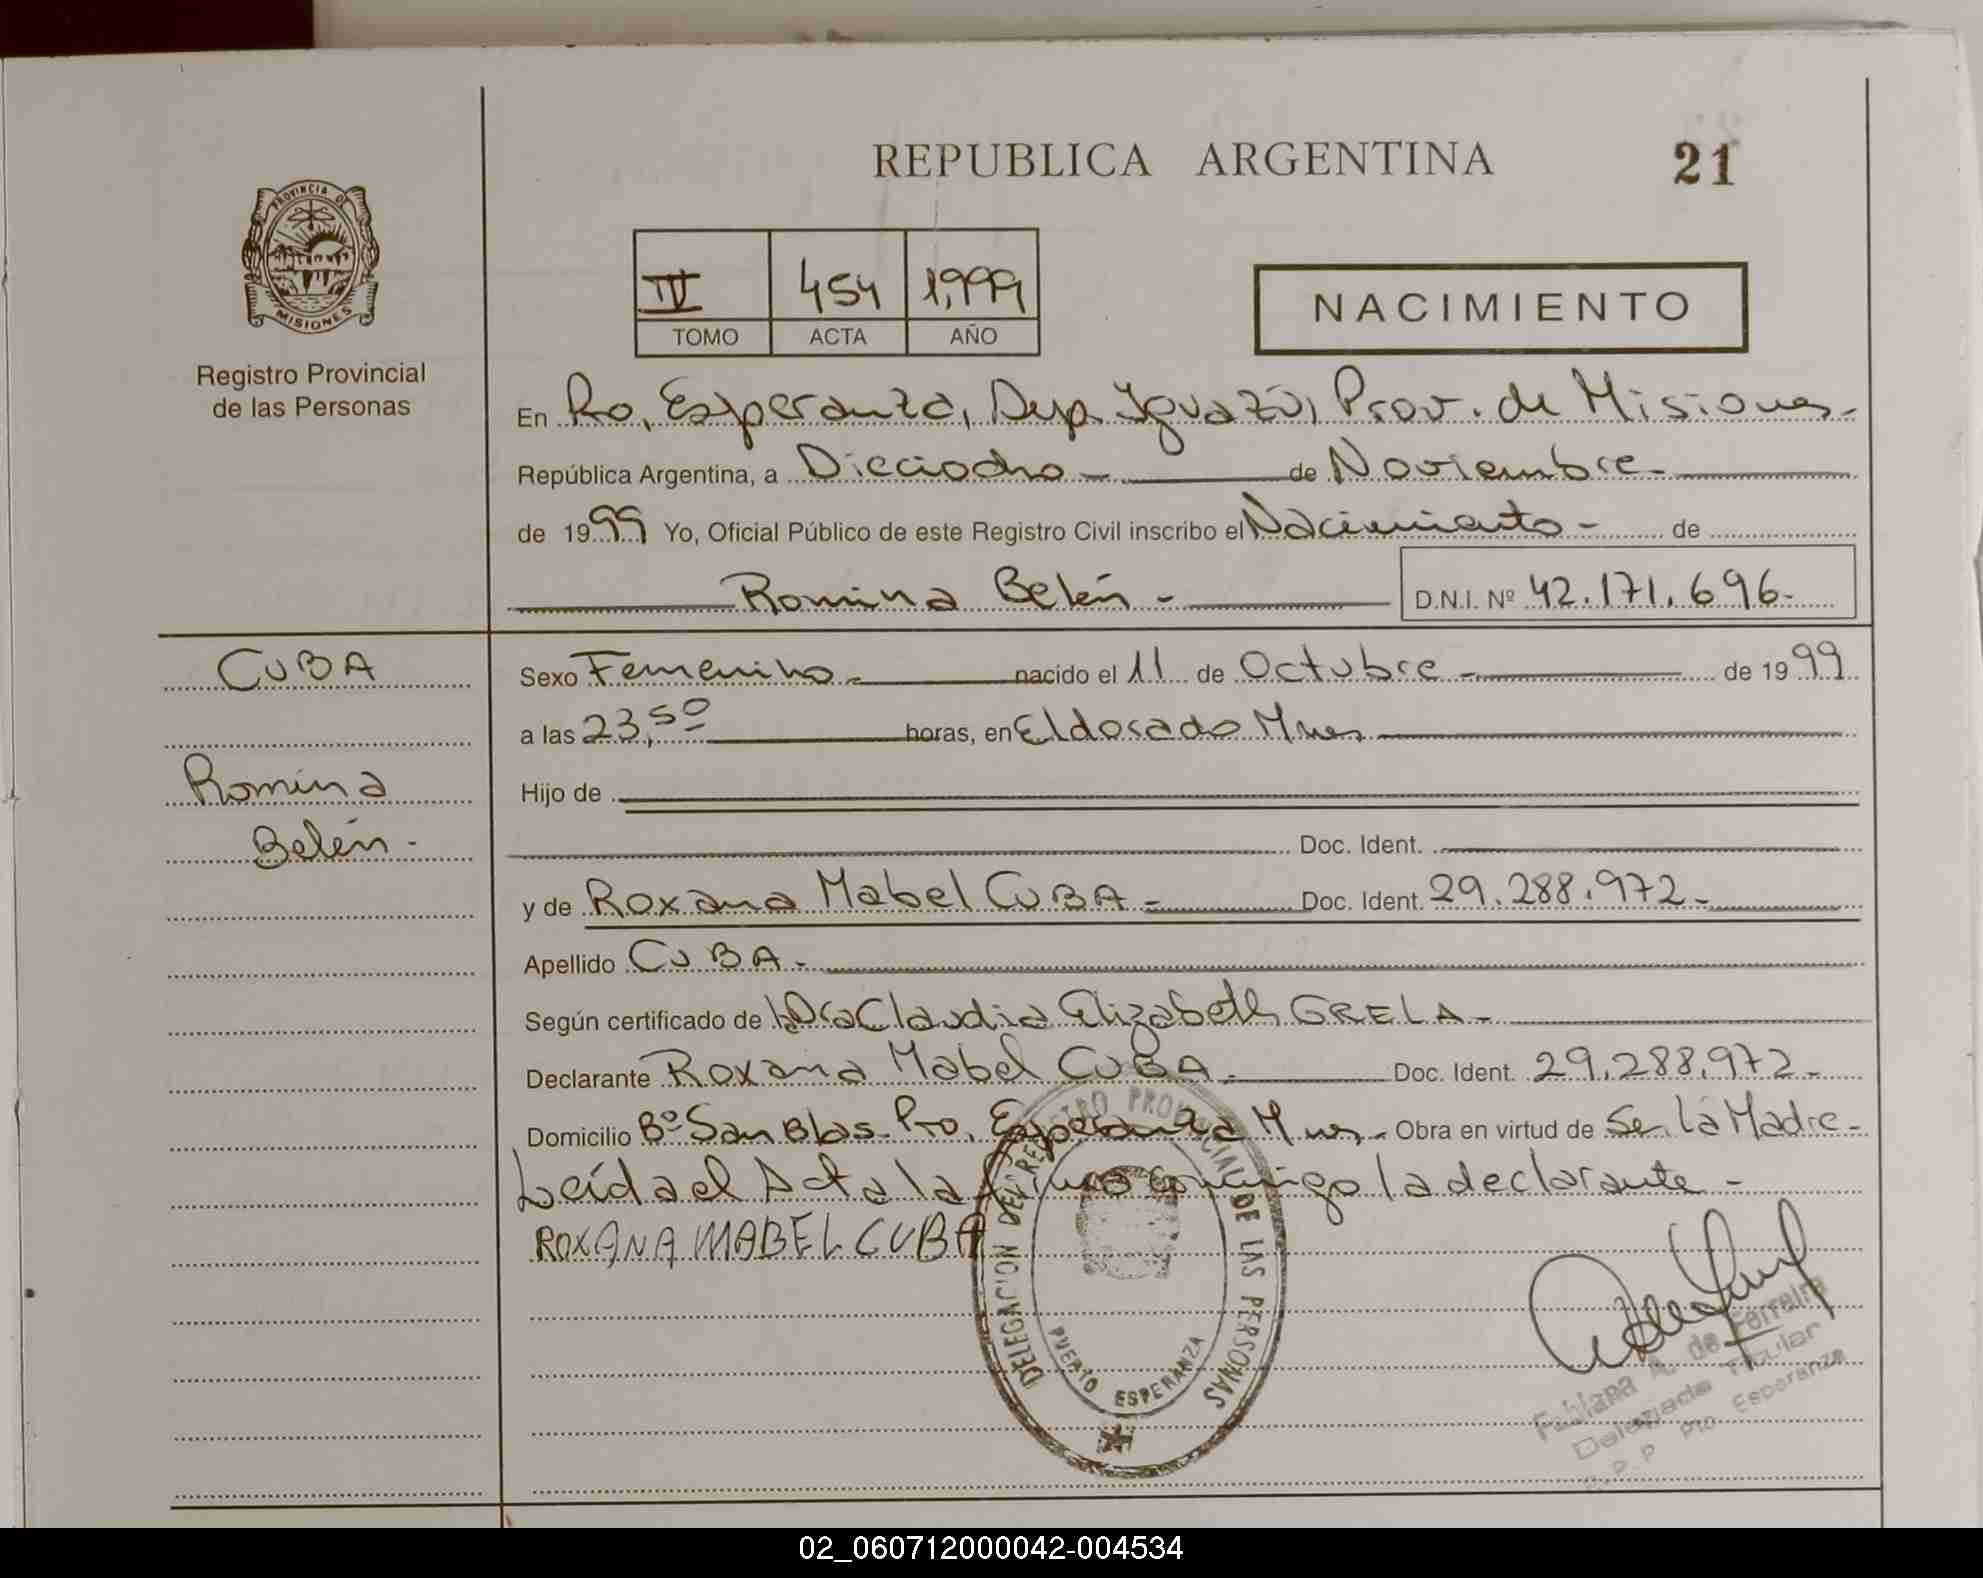 REPUBLICA ARGENTINA
21
PROVINCIA DE
MISIONES
Registro Provincial
de las Personas
IV 454 1,999
TOMO ACTA AÑO
NACIMIENTO
En Pto, Esperanza, Dep. Iguazú, Prov. de Misiones-
República Argentina, a Dieciocho- de Noviembre-
de 1999 Yo, Oficial Público de este Registro Civil inscribo el Nacimiento- de
Romina Belén- D.N.I. Nº 42.171.696-
CUBA
Romina
Belén-
Sexo Femenino- nacido el 11 de Octubre- de 1999
a las 23,50 horas, en Eldorado Mnes
Hijo de
Doc. Ident.
y de Roxana Mabel CUBA- Doc. Ident. 29.288.972-
Apellido CUBA-
Según certificado de la Dra Claudia Elizabeth GRELA-
Declarante Roxana Mabel CUBA- Doc. Ident. 29.288.972-
Domicilio Bº San Blas- Pto, Esperanza Mnes- Obra en virtud de Ser la Madre-
Leída el Acta la firma conmigo la declarante-
ROXANA MABEL CUBA
DELEGACION DEL REGISTRO PROVINCIAL DE LAS PERSONAS
PUERTO ESPERANZA
Fabiana A. de Ferreira
Delegada Titular
R.P.P Pto Esperanza
02_060712000042-004534